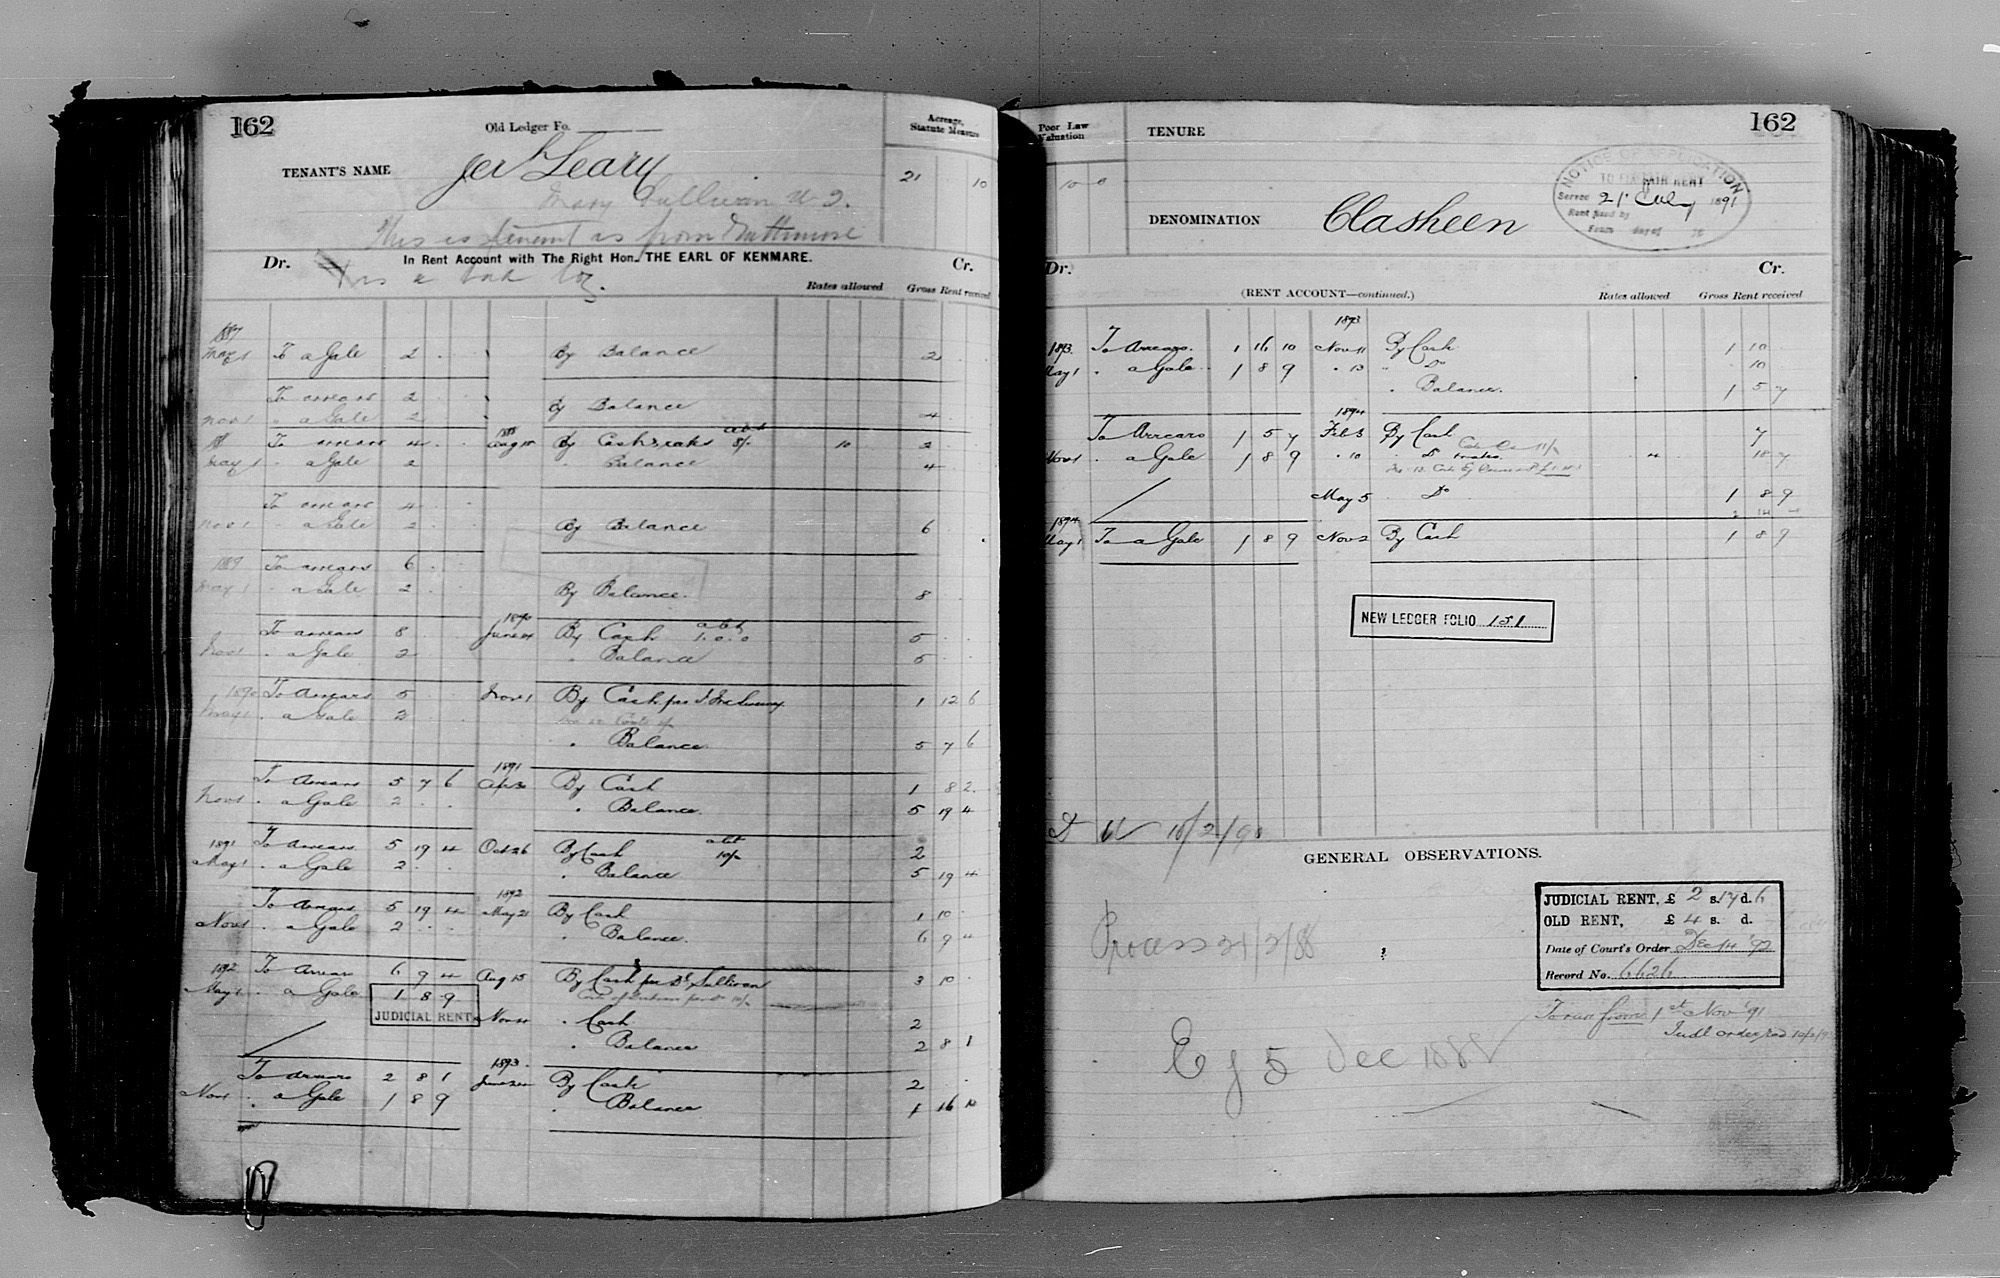 162
Old Ledger Fo.
Acreage, Statute Measure
TENANT'S NAME Jer Leary
21 10
Mary Sullivan
This is tenant as from
Dr. In Rent Account with The Right Hon. THE EARL OF KENMARE. Cr.
Has a
Rates allowed Gross Rent received
1887
May 1 To a Gale 2 . . By Balance 2 . .
To arrears 2 . . By Balance 4 . .
Nov 1 " a Gale 2 . .
1888
To arrears 4 . . Aug 15 By Cash & rates abt 8/- 10 2
May 1 " a Gale 2 " Balance 4
To arrears 4
Nov 1 " a Gale 2 By Balance 6
1889 To arrears 6 . .
May 1 " a Gale 2 . . By Balance. 8
1890 abt
To arrears 8 June 24 By Cash 1.0.0 5
Nov 1 " a Gale 2 " Balance 5
1890 To Arrears 5 . . Nov 1 By Cash per 1 12 6
May 1 " a Gale 2 . .
" Balance 5 7 6
1891
To Arrears 5 7 6 Ap 30 By Cash 1 8 2
Nov 1 " a Gale 2 . . " Balance. 5 19 4
1891 To arrears 5 19 4 Oct 26 By Cash abt 10/- 2
May 1 " a Gale 2 . . " Balance 5 19 4
1892
To Arrears 5 19 4 May 21 By Cash 1 10
Nov 1 " a Gale 2 . . " Balance. 6 9 4
1892 To Arrear 6 9 4 Aug 15 By Cash per D. Sullivan 3 10
May 1 " a Gale 1 8 9
JUDICIAL RENT
Nov " Cash 2
" Balance 2 8 1
1893.
To arrears 2 8 1 June By Cash 2
Nov 1 " a Gale 1 8 9 " Balance 1 16 10
Poor Law Valuation
TENURE
162
10 0
NOTICE OF APPLICATION
TO FIX FAIR RENT
Served 21 July 1891
Rent fixed by
From day of 18
DENOMINATION Clasheen
Dr. Cr.
(RENT ACCOUNT—continued.) Rates allowed Gross Rent received
1893
1893. To Arrears. 1 16 10 Nov 11 By Cash 1 10
May 1 " a Gale 1 8 9 " 13 " Do 10
" Balance. 1 5 7
1894
To Arrears 1 5 7 Feb 3 By Cash 7
Nov 1 " a Gale 1 8 9 " 10 " Do & rates 4 18 7
May 5 Do 1 8 9
1894
May 1 To a Gale 1 8 9 Nov 2 By Cash 1 8 9
NEW LEDGER FOLIO 151
GENERAL OBSERVATIONS.
JUDICIAL RENT, £ 2 s. 17 d. 6
OLD RENT, £ 4 s. d.
Date of Court's Order Dec 14 '92
Record No. 6626
Process 21/2/88
To run from 1st Nov '91
Judl order
Ej 5 Dec 1888